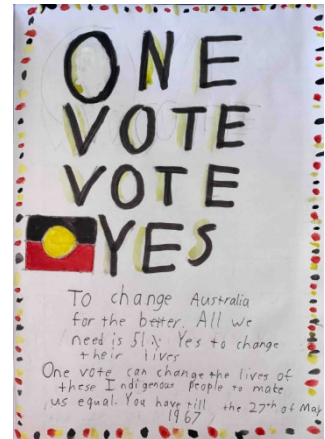 ONE
VOTE
VOTE
YES
To change Australia
for the better. All we
need is 51% Yes to change
their lives
One vote can change the lives of
these Indigenous people to make
us equal. You have till the 27th of May
1967